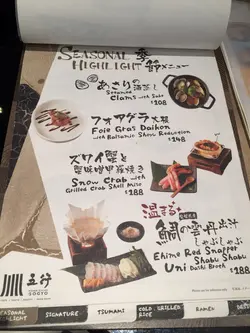 SEASONAL 季
HIGHLIGHT 節メニュー
あさりの酒蒸し
Steamed
Clams with Sake
$108
フォアグラ大根
Foie Gras Daikon
with Balsamic Shoyu Reduction
$148
ズワイ蟹と
蟹味噌甲羅焼き
Snow Crab with
Grilled Crab Shell Miso
$188
温まる
鯛の雲丹出汁
しゃぶしゃぶ
Ehime Red Snapper
Shabu Shabu
Uni Dashi Broth
$288
五行
GOGYO
SEASONAL
HIGHLIGHT
SIGNATURE
TSUMAMI
COLD
RICE
GRILLED
RAMEN